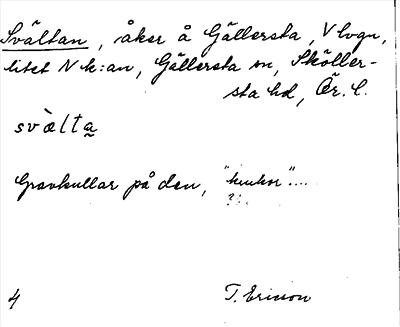 Svältan, åker å Gällersta, V lvgn,
litet N k:an, Gällersta sn, Sköller-
sta hd, Ör. l.
svàlta̰
Gravkullar på den, "kuukor"....
?:.
4 T. Ericson